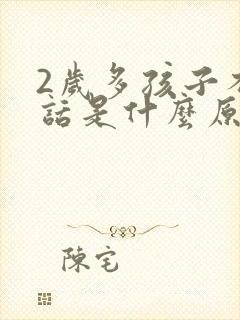 2歲多孩子
話是什麼原
陳宅